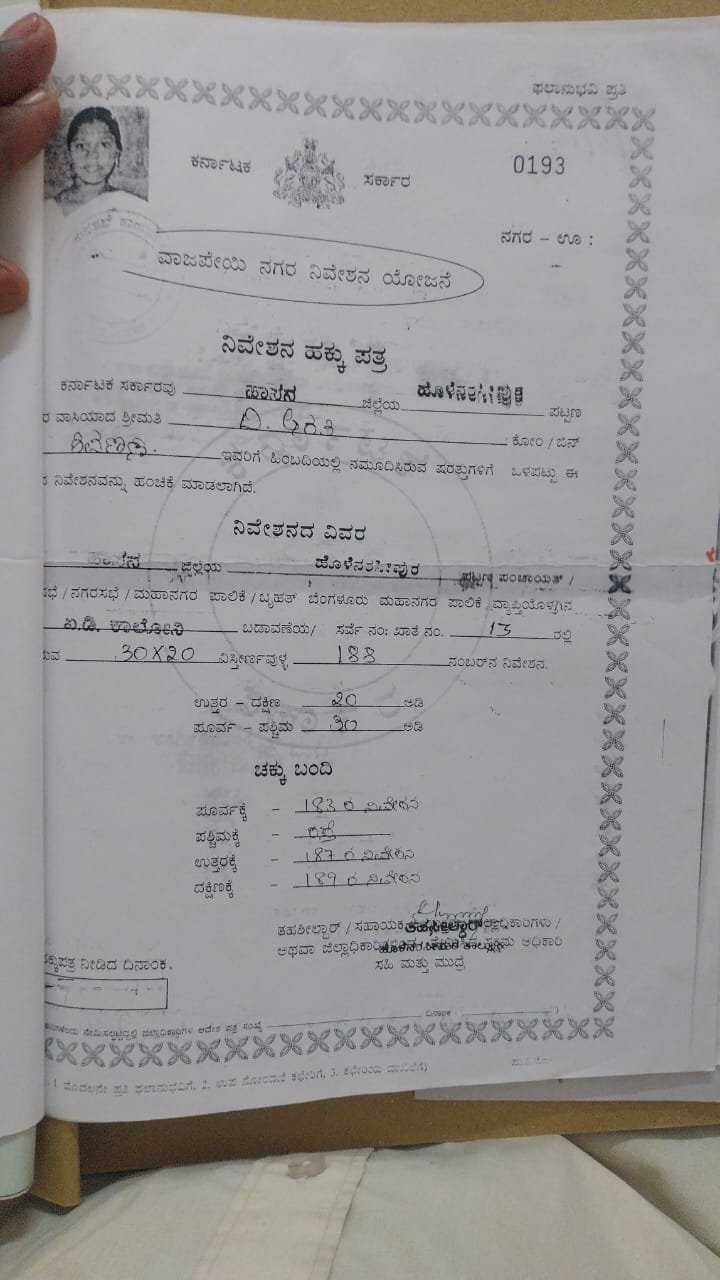 ಫಲಾನುಭವಿ ಪ್ರತಿ
ಕರ್ನಾಟಕ ಸರ್ಕಾರ 0193
ನಗರ – ಊ :
ವಾಜಪೇಯಿ ನಗರ ನಿವೇಶನ ಯೋಜನೆ
ನಿವೇಶನ ಹಕ್ಕು ಪತ್ರ
ಕರ್ನಾಟಕ ಸರ್ಕಾರವು ಹಾಸನ ಜಿಲ್ಲೆಯ ಹೊಳೆನರಸೀಪುರ ಪಟ್ಟಣ
ರ ವಾಸಿಯಾದ ಶ್ರೀಮತಿ ಕೋಂ / ಬಿನ್
ಇವರಿಗೆ ಹಿಂಬದಿಯಲ್ಲಿ ನಮೂದಿಸಿರುವ ಷರತ್ತುಗಳಿಗೆ ಒಳಪಟ್ಟು ಈ
ನಿವೇಶನವನ್ನು ಹಂಚಿಕೆ ಮಾಡಲಾಗಿದೆ.
ನಿವೇಶನದ ವಿವರ
ಹಾಸನ ಜಿಲ್ಲೆಯ ಹೊಳೆನರಸೀಪುರ ಪಟ್ಟಣ ಪಂಚಾಯತ್ /
ಸಭೆ / ನಗರಸಭೆ / ಮಹಾನಗರ ಪಾಲಿಕೆ / ಬೃಹತ್ ಬೆಂಗಳೂರು ಮಹಾನಗರ ಪಾಲಿಕೆ ವ್ಯಾಪ್ತಿಯೊಳಗಿನ
ಎ.ಡಿ. ಕಾಲೋನಿ ಬಡಾವಣೆಯ/ ಸರ್ವೆ ನಂ: ಖಾತೆ ನಂ. 13 ರಲ್ಲಿ
ರುವ 30X20 ವಿಸ್ತೀರ್ಣವುಳ್ಳ 188 ನಂಬರ್‌ನ ನಿವೇಶನ.
ಉತ್ತರ – ದಕ್ಷಿಣ 20 ಅಡಿ
ಪೂರ್ವ – ಪಶ್ಚಿಮ 30 ಅಡಿ
ಚಕ್ಕು ಬಂದಿ
ಪೂರ್ವಕ್ಕೆ – 183 ರ ನಿವೇಶನ
ಪಶ್ಚಿಮಕ್ಕೆ – ರಸ್ತೆ
ಉತ್ತರಕ್ಕೆ – 187 ರ ನಿವೇಶನ
ದಕ್ಷಿಣಕ್ಕೆ – 189 ರ ನಿವೇಶನ
ತಹಶೀಲ್ದಾರ್ / ಸಹಾಯಕ ತಹಸೀಲ್ದಾರ್ ಜಿಲ್ಲಾಧಿಕಾರಿಗಳು /
ಅಥವಾ ಹೊಳೆನರಸೀಪುರ ತಾಲ್ಲೂಕು ಸಕ್ಷಮ ಅಧಿಕಾರಿ
ಸಹಿ ಮತ್ತು ಮುದ್ರೆ
ಹಕ್ಕುಪತ್ರ ನೀಡಿದ ದಿನಾಂಕ.
ಜಿಲ್ಲಾಧಿಕಾರಿಗಳ ಆದೇಶ ಪತ್ರ ಸಂಖ್ಯೆ ದಿನಾಂಕ :
1 ಮೊದಲನೇ ಪ್ರತಿ ಫಲಾನುಭವಿಗೆ, 2. ಉಪ ನೋಂದಣಿ ಕಛೇರಿಗೆ, 3. ಕಛೇರಿಯ ದಾಖಲೆಗೆ)